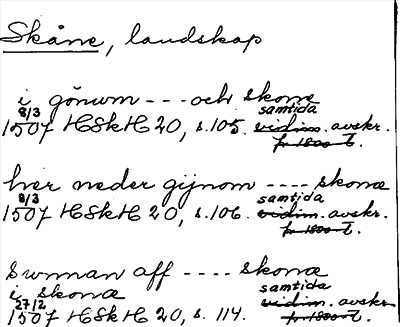 Skåne, landskap
i gönwm --- och skonæ
8/3 samtida
1507 HSkH 20, s. 105. vidim. avskr.
fr 1800-t.
hær neder gijnom ---- skonæ
8/3 samtida
1507 HSkH 20, s. 106. vidim. avskr.
fr 1800-t.
swnnan aff ---- skonæ
i skonæ samtida
27/2 vidim. avskr.
1507 HSkH 20, s. 114. fr 1800-t.